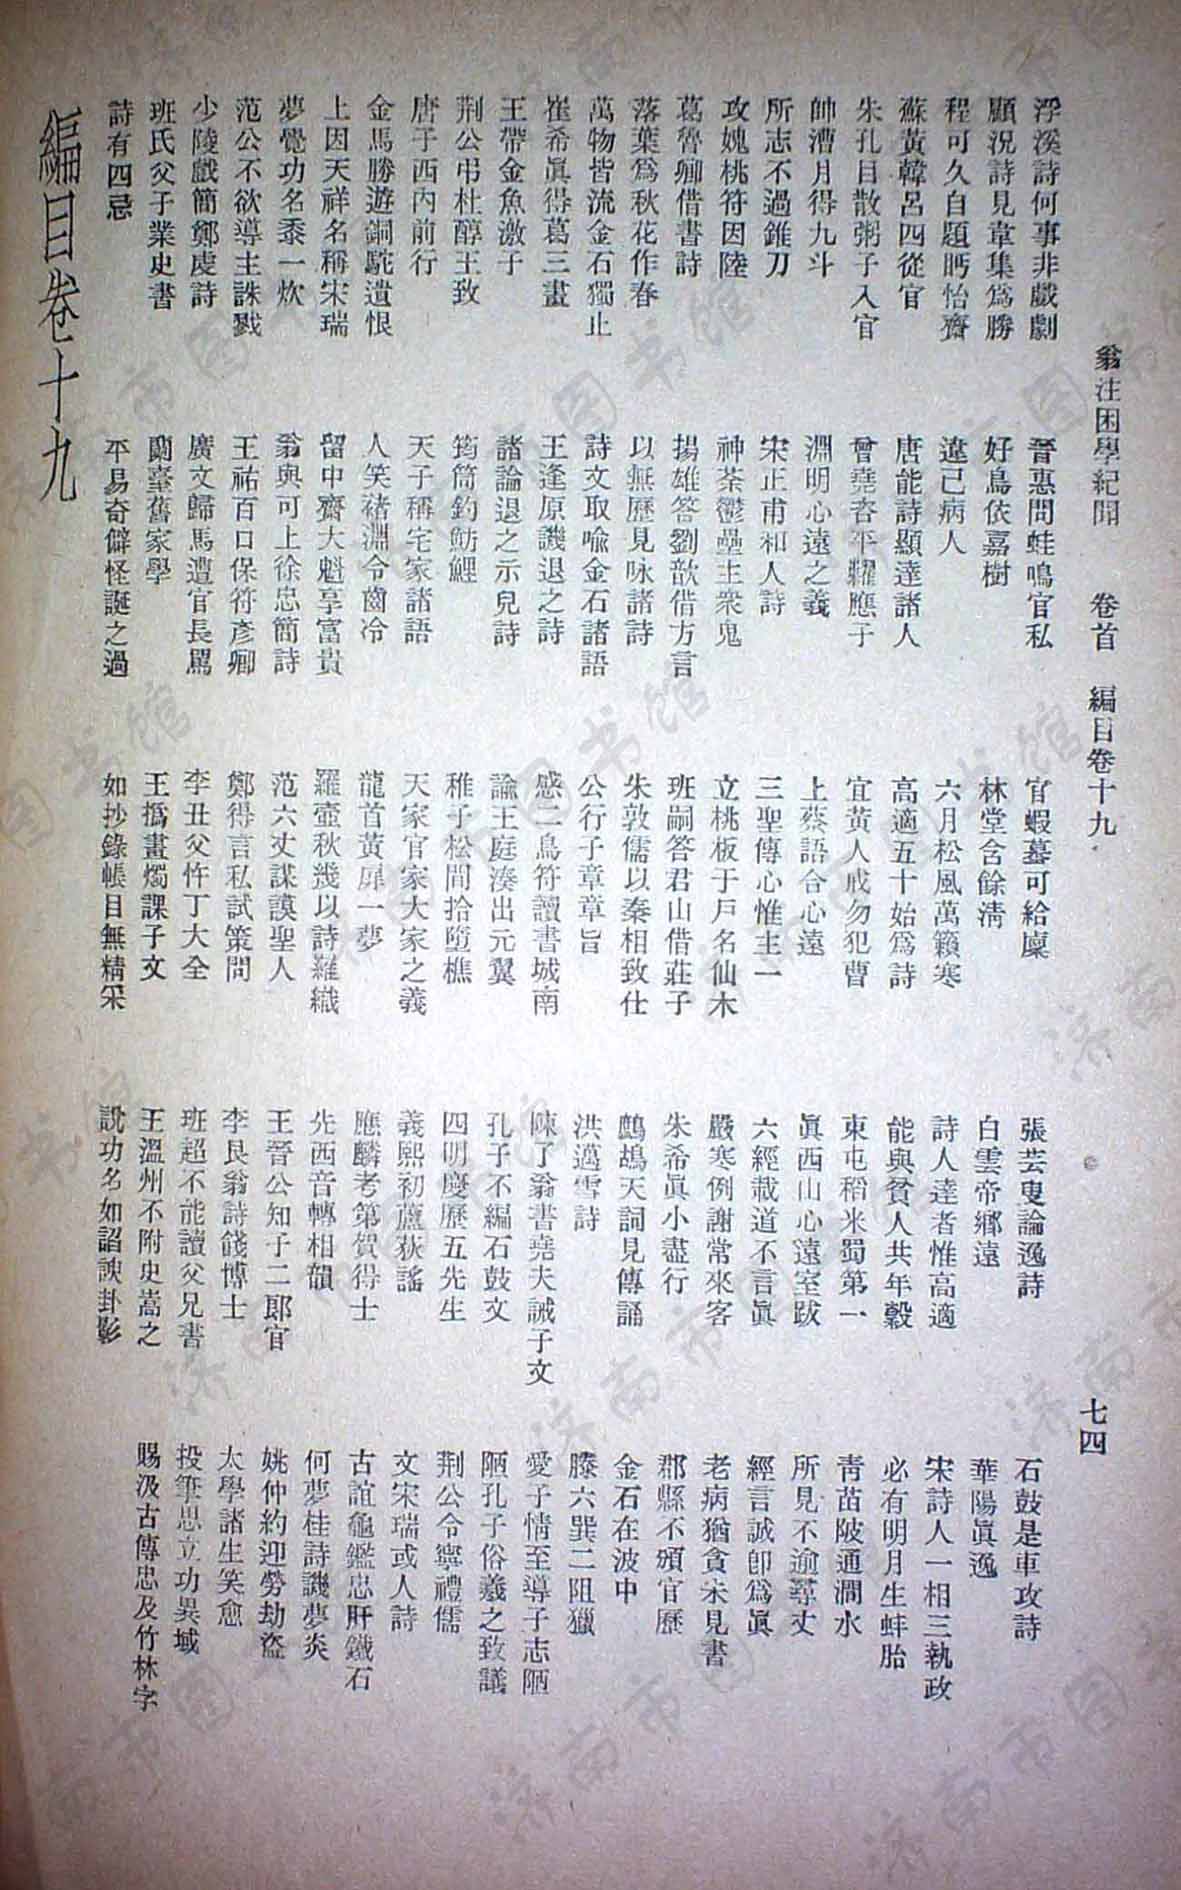 翁注困學紀聞　卷首　編目卷十九　七四
浮溪詩何事非戲劇　晉惠問蛙鳴官私　官蝦蟇可給廩　張芸叟論逸詩　石鼓是車攻詩
顧況詩見韋集爲勝　好鳥依嘉樹　林堂含餘淸　白雲帝鄉遠　華陽眞逸
程可久自題眄怡齋　遼已病人　六月松風萬籟寒　詩人達者惟高適　宋詩人一相三執政
蘇黃韓呂四從官　唐能詩顯達諸人　高適五十始爲詩　能與貧人共年穀　必有明月生蚌胎
朱孔目散粥子入官　曾堯杳平糶應子　宜黃人戒勿犯曹　東屯稻米蜀第一　靑苗陂通澗水
帥漕月得九斗　淵明心遠之義　上蔡語合心遠　眞西山心遠室跋　所見不逾尋丈
所志不過錐刀　宋正甫和人詩　三聖傳心惟主一　六經載道不言眞　經言誠卽爲眞
攻媿桃符因陸　神荼鬱壘主衆鬼　立桃板于戶名仙木　嚴寒例謝常來客　老病猶貪未見書
葛魯卿借書詩　揚雄答劉歆借方言　班嗣答君山借莊子　朱希眞小盡行　郡縣不頒官歷
落葉爲秋花作春　以無歷見咏諸詩　朱敦儒以秦相致仕　鷓鴣天詞見傳誦　金石在波中
萬物皆流金石獨止　詩文取喩金石諸語　公行子章章旨　洪邁雪詩　滕六巽二阻獵
崔希眞得葛三畫　王逢原譏退之詩　感二鳥符讀書城南　陳了翁書堯夫誡子文　愛子情至導子志陋
王帶金魚激子　諸論退之示兒詩　論王庭湊出元翼　孔子不編石鼓文　陋孔子俗羲之致議
荆公弔杜醇王致　筠筒釣魴鯉　稚子松間拾墮樵　四明慶歷五先生　荆公令寧禮儒
唐子西內前行　天子稱宅家諸語　天家官家大家之義　義熙初蘆荻謠　文宋瑞或人詩
金馬勝遊銅駝遺恨　人笑褚淵令齒冷　龍首黃扉一夢　應麟考第賀得士　古誼龜鑑忠肝鐵石
上因天祥名稱宋瑞　留中齋大魁享富貴　羅壼秋幾以詩羅織　先西音轉相韻　何夢桂詩譏夢炎
夢覺功名黍一炊　翁與可上徐忠簡詩　范六丈謀謨聖人　王晉公知子二郎官　姚仲約迎勞劫盜
范公不欲導主誅戮　王祐百口保符彥卿　鄭得言私試策問　李艮翁詩餞博士　太學諸生笑愈
少陵戲簡鄭虔詩　廣文歸馬遭官長罵　李丑父忤丁大全　班超不能讀父兄書　投筆思立功異域
班氏父子業史書　蘭臺舊家學　王撝畫燭課子文　王溫州不附史嵩之　賜汲古傳忠及竹林字
詩有四忌　平易奇僻怪誕之過　如抄錄帳目無精采　說功名如諂諛卦影
編目卷十九